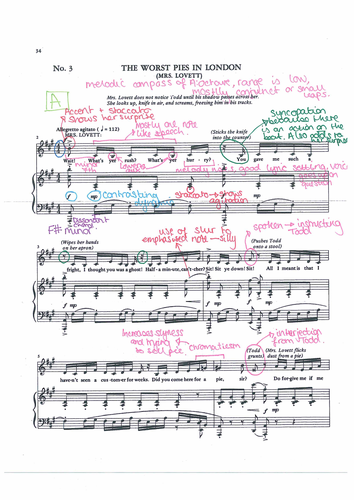 34
No. 3
THE WORST PIES IN LONDON
(MRS. LOVETT)
melodic compass of octave, range is low,
mostly conjunct or small
leaps.
Mrs. Lovett does not notice Todd until his shadow passes across her.
She looks up, knife in air, and screams, freezing him in his tracks.
A
Accent + staccato
shows her surprise
Syncopation
there
is an action on the
beat. Also adds to
her surprise
Allegretto agitato (♩ = 112)
MRS. LOVETT:
mostly one note
like speech.
(Sticks the knife
into the counter)
Wait! What's yer rush? What's yer hur - ry? You gave me such a
minor
melody
good lyric setting,
question
contrasting
dynamics
staccato shows
agitation
mp
Dissonant
chord
F# minor
(Wipes her hands
on her apron)
use of slur to
emphasise note - silly
spoken → instructing
Todd
(Pushes Todd
onto a stool)
fright, I thought you was a ghost! Half - a - min-ute, can't-cher? Sit! Sit ye down! Sit! All I meant is that I
f
mp
Increases slyness
and trying
to sell pie
chromaticism
interjection
from Todd.
(Todd
grunts)
(Mrs. Lovett flicks
dust from a pie)
have-n't seen a cus-tom-er for weeks. Did you come here for a pie, sir? Do for-give me if me
f
mp